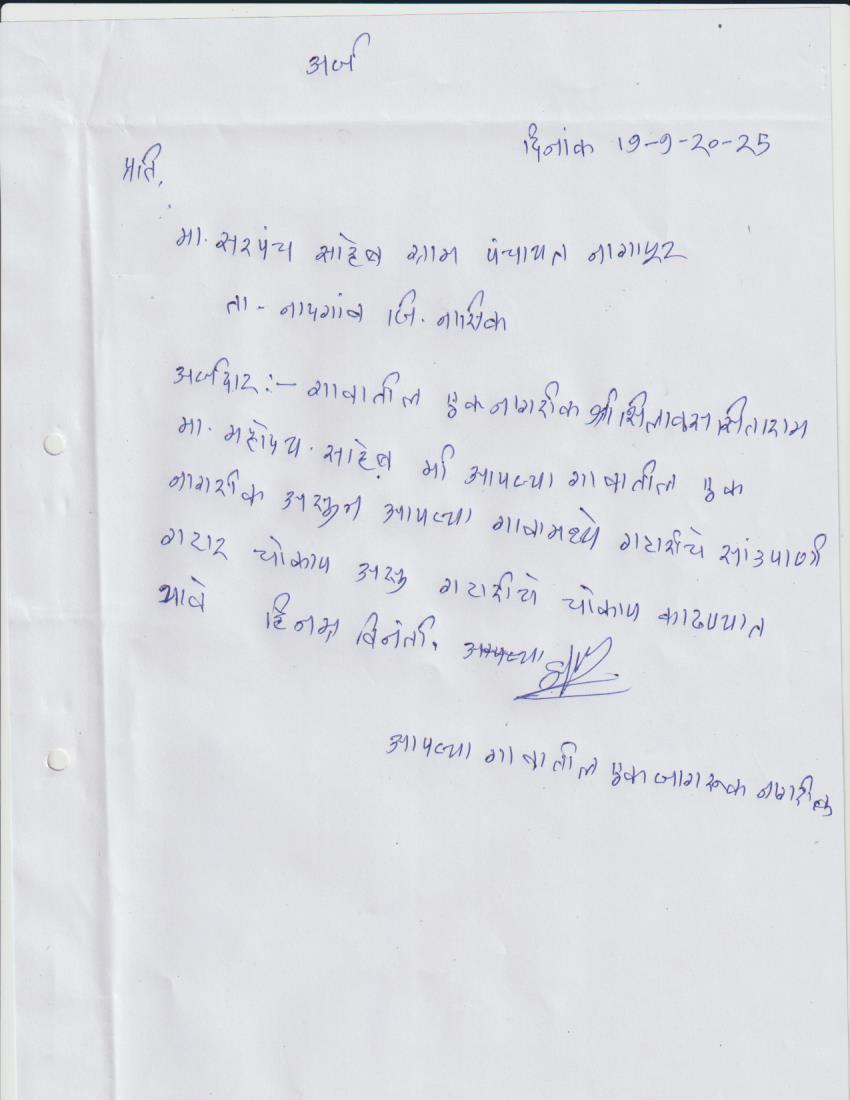 अर्ज
दिनांक 19-9-20-25
प्रति,
मा. सरपंच साहेब ग्राम पंचायत नागापूर
ता - नांदगांव जि. नाशिक
अर्जदार :- गावातील एक नागरीक श्री सिताराम
मा. महोदय. साहेब मी आपल्या गावातील एक
नागरीक असून आपल्या गावामध्ये गटारीचे सांडपाणी
गटार चोकाप असु गटारीचे चोकाप काढण्यात
यावे हि नम्र विनंती. आपल्या
आपल्या गावातील एक जागरूक नागरीक